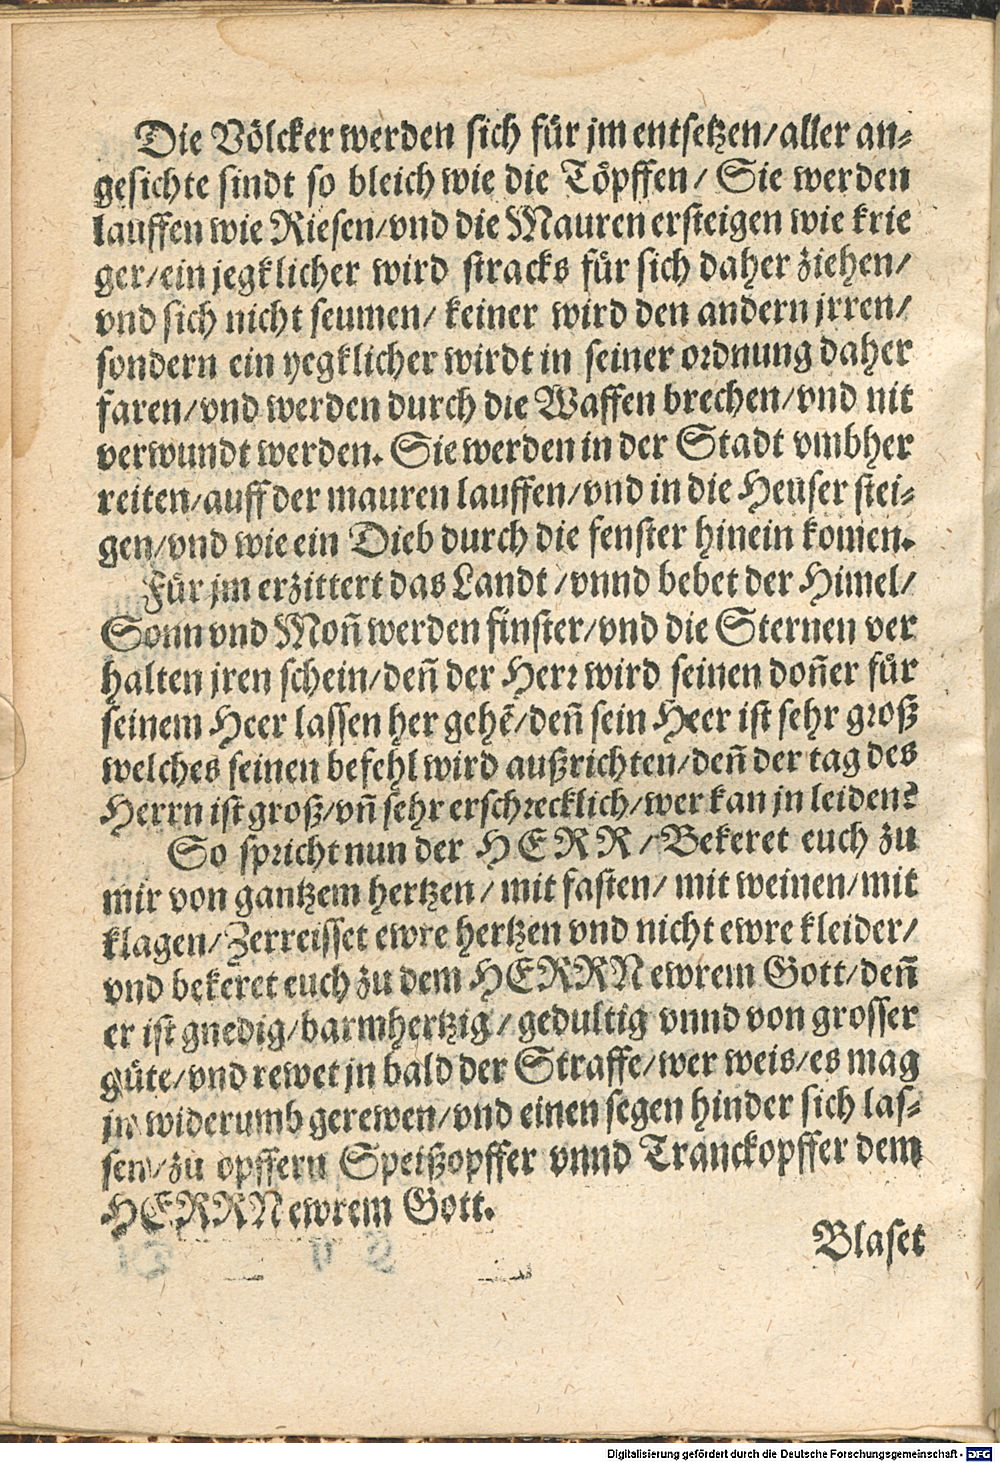 Die Völcker werden sich für jm entsetzen/aller an⸗
gesichte sindt so bleich wie die Töpffen/ Sie werden
lauffen wie Riesen/vnd die Mauren ersteigen wie krie
ger/ein jegklicher wird stracks für sich daher ziehen/
vnd sich nicht seumen/ keiner wird den andern jrren/
sondern ein yegklicher wirdt in seiner ordnung daher
faren/vnd werden durch die Waffen brechen/vnd nit
verwundt werden. Sie werden in der Stadt vmbher
reiten/auff der mauren lauffen/vnd in die Heuser stei⸗
gen/vnd wie ein Dieb durch die fenster hinein komen.
Für jm erzittert das Landt/vnnd bebet der Himel/
Sonn vnd Moñ werden finster/vnd die Sternen ver
halten jren schein/deñ der Herr wird seinen doñer für
seinem Heer lassen her gehẽ/deñ sein Heer ist sehr groß
welches seinen befehl wird außrichten/deñ der tag des
Herrn ist groß/vñ sehr erschrecklich/wer kan jn leiden?
So spricht nun der HERR/Bekeret euch zu
mir von gantzem hertzen/ mit fasten/ mit weinen/mit
klagen/Zerreisset ewre hertzen vnd nicht ewre kleider/
vnd bekeret euch zu dem HERRN ewrem Gott/deñ
er ist gnedig/barmhertzig/ gedultig vnnd von grosser
güte/vnd rewet jn bald der Straffe/wer weis/es mag
jn widerumb gerewen/vnd einen segen hinder sich las⸗
sen/zu opffern Speißopffer vnnd Tranckopffer dem
HERRN ewrem Gott.
Blaset
Digitalisierung gefördert durch die Deutsche Forschungsgemeinschaft - DFG